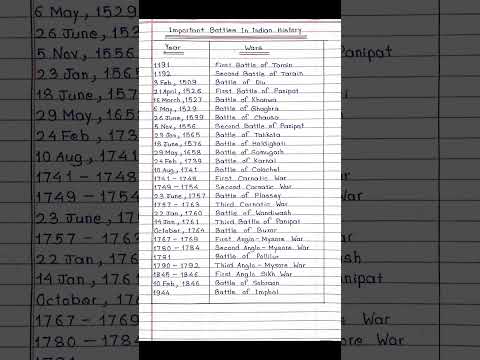 Important Battles In Indian History
Year Wars
1191 First Battle of Tarain
1192 Second Battle of Tarain
3 Feb, 1509 Battle of Diu
21 April, 1526 First Battle of Panipat
16 March, 1527 Battle of Khanwa
6 May, 1529 Battle of Ghaghra
26 June, 1539 Battle of Chausa
5 Nov, 1556 Second Battle of Panipat
23 Jan, 1565 Battle of Talikota
18 June, 1576 Battle of Haldighati
29 May, 1658 Battle of Samugarh
24 Feb, 1739 Battle of Karnal
10 Aug, 1741 Battle of Colachel
1741 - 1748 First Carnatic War
1749 - 1754 Second Carnatic War
23 June, 1757 Battle of Plassey
1757 - 1763 Third Carnatic War
22 Jan, 1760 Battle of Wandiwash
14 Jan, 1761 Third Battle of Panipat
October, 1764 Battle of Buxar
1767 - 1769 First Anglo - Mysore War
1780 - 1784 Second Anglo - Mysore War
1781 Battle of Pollilur
1790 - 1792 Third Anglo - Mysore War
1845 - 1846 First Anglo Sikh War
10 Feb, 1846 Battle of Sobraon
1944 Battle of Imphal